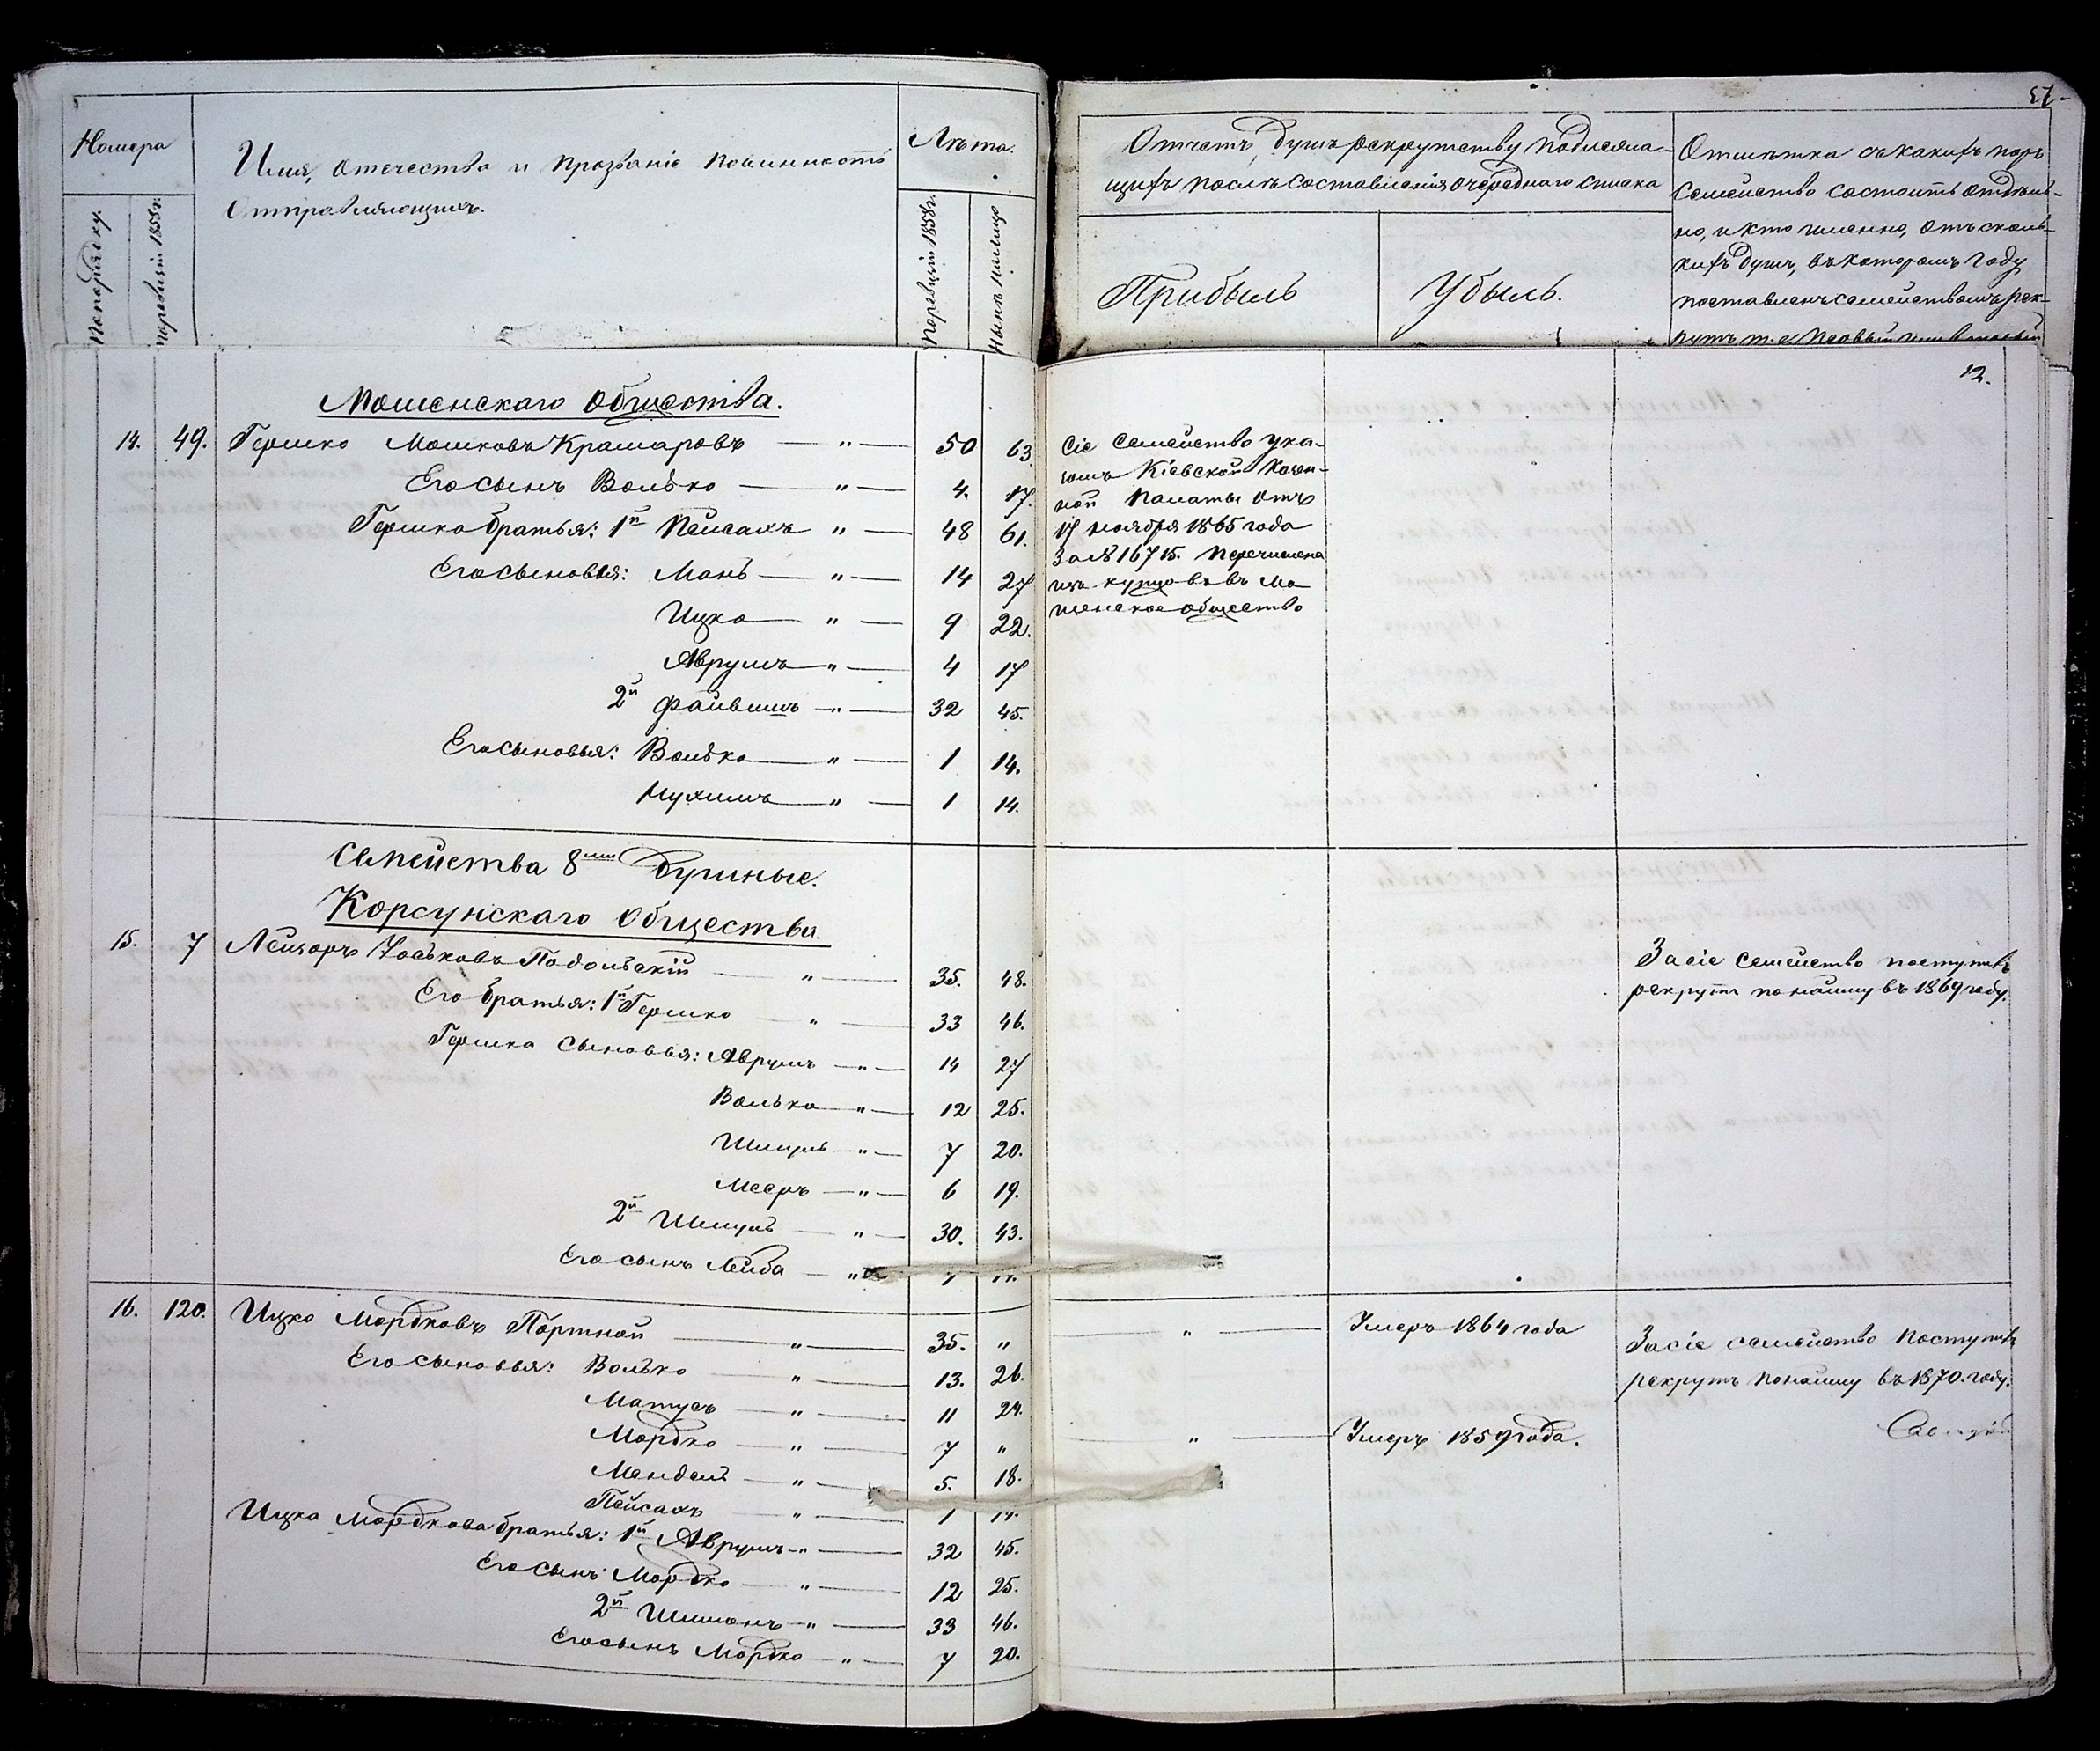 57
Номера
По порядку.
По ревизіи 1858 г.
Имя, отечество и прозваніе повинность
отправляющихъ.
Лѣта.
По ревизіи 1858 г.
Нынѣ
Отчетъ душъ рекрутству подлежа-
щихъ послѣ составленія очереднаго списка
Прибыль
Убыль.
Отмѣтка съ какихъ поръ
семейство состоитъ отдѣль-
но, и кто именно, отъ сколь-
кихъ душъ, въ которомъ году
поставленъ семействомъ рек-
рутъ т. е. первый или
12.
Мошенскаго Общества.
14. 49. Гершко Мошковъ Крамаровъ — " — 50 63.
Его сынъ Волько — " — 4. 17.
Гершка братья: 1й Пейсахъ " — 48 61.
Его сыновья: Мань — " — 14 27
Ицко — " — 9 22.
Аврумъ — " — 4 17
2й Файвишъ — " — 32 45.
Его сыновья: Волько — " — 1 14.
Нухимъ — " — 1 14.
Сіе семейство ука-
зомъ Кіевской Казен-
ной Палаты отъ
17 ноября 1865 года
за № 16715. перечислена
изъ купцовъ въ Мо-
шенское общество
Семейства 8ми душные.
Корсунскаго Общества.
15. 7 Лейзоръ Хоськовъ Подольскій — " — 35. 48.
Его братья: 1й Гершко — " — 33 46.
Гершка сыновья: Аврумъ — " — 14 27
Волько — " — 12 25.
Шмуль — " — 7 20.
Мееръ — " — 6 19.
2й Шмуль — " — 30. 43.
Его сынъ Лейба — "
За сіе семейство поступилъ
рекрутъ по найму въ 1869 году.
16. 120. Ицко Мордковъ Портной — " — 35. "
Его сыновья: Волько — " — 13. 26.
Матусъ — " — 11 24.
Мордко — " — 7 "
Мендель — " — 5. 18.
Пейсахъ — " — 1 14.
Ицка Мордкова братья: 1й Аврумъ — " — 32 45.
Его сынъ Мордко — " — 12 25.
2й Шимонъ — " — 33 46.
Его сынъ Мордко — " — 7 20.
" — Умеръ 1864 года
" — Умеръ 1859 года.
За сіе семейство поступилъ
рекрутъ по найму въ 1870. году.